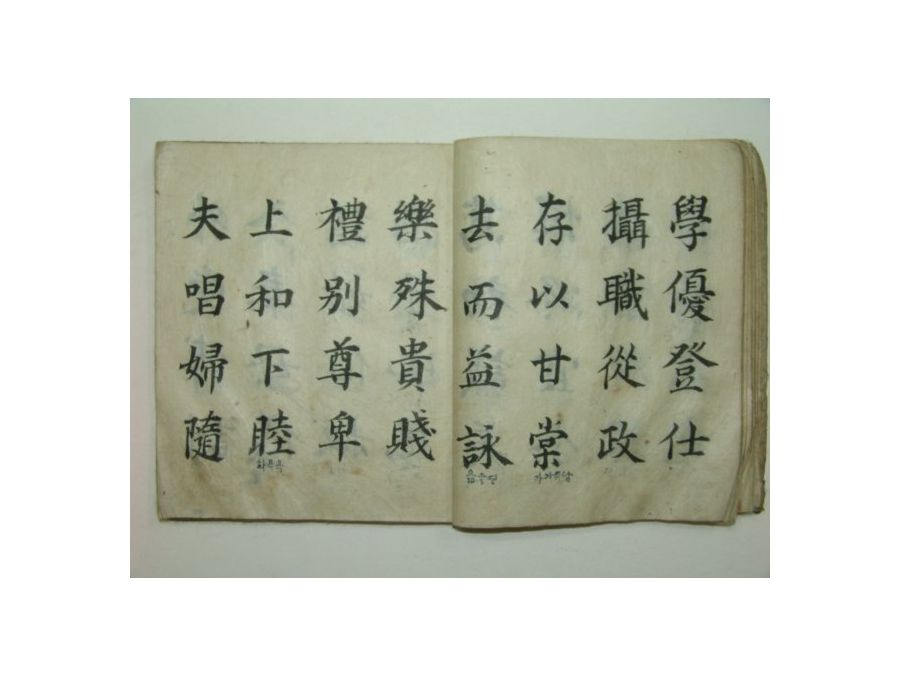 學優登仕
攝職從政
存以甘棠
去而益詠
樂殊貴賤
禮別尊卑
上和下睦
夫唱婦隨